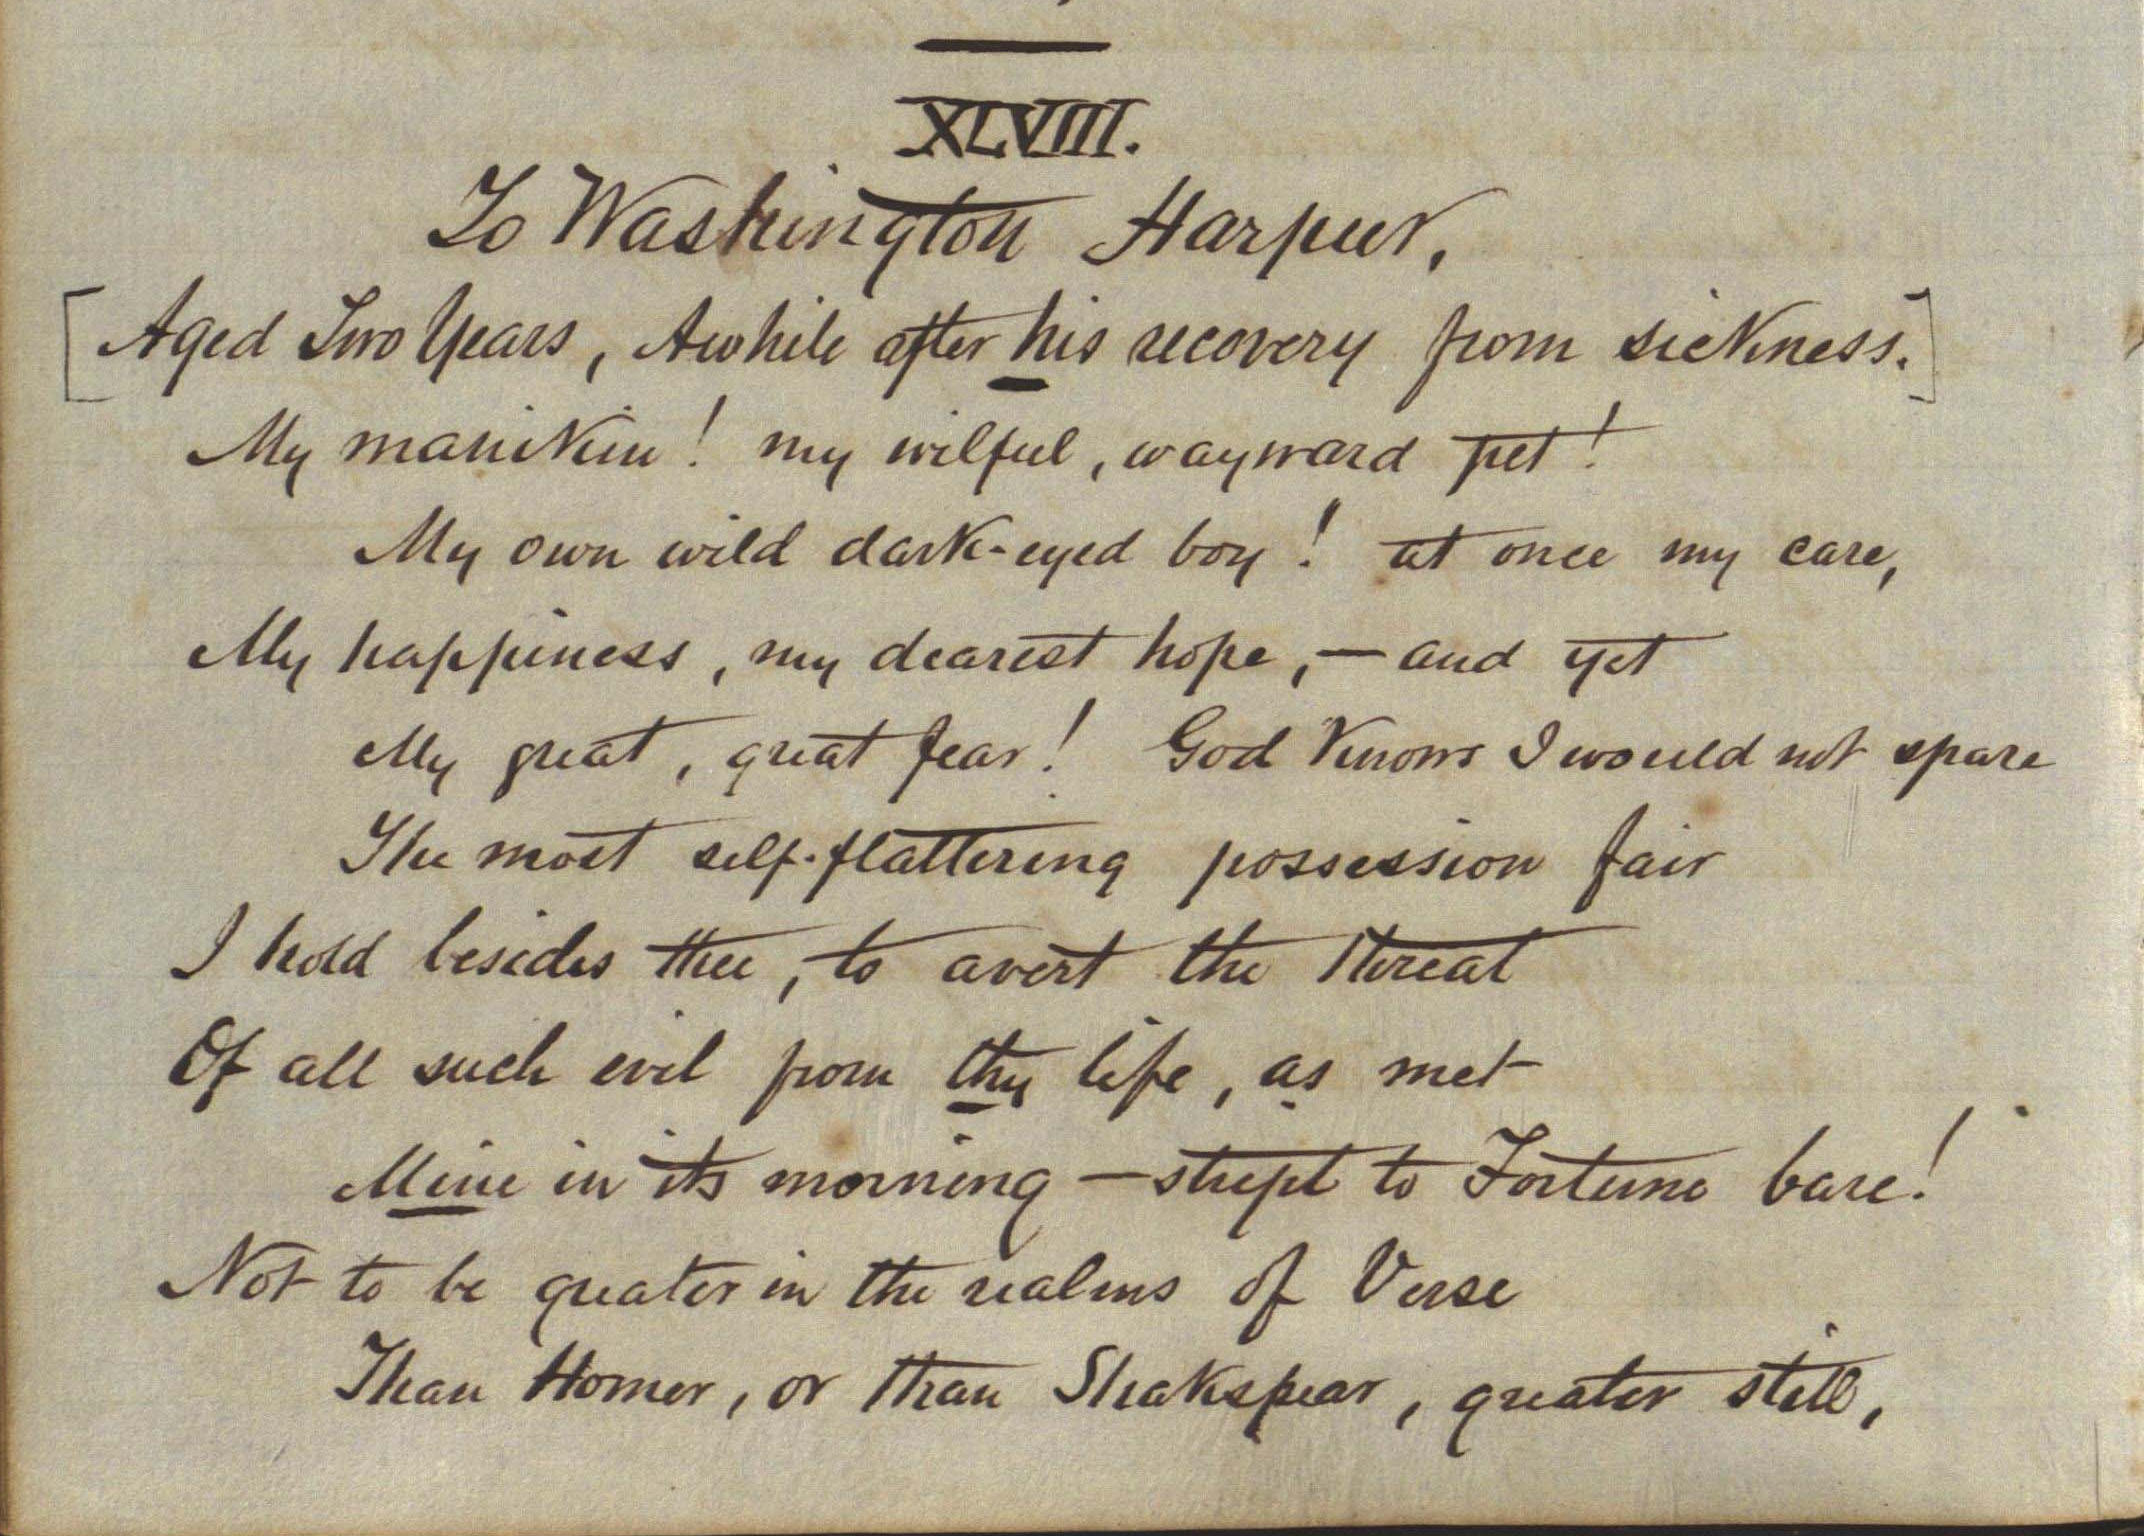 XLVIII.
To Washington Harpur,
[Aged Two Years, Awhile after his recovery from sickness.]
My manikin! my wilful, wayward pet!
My own wild dark-eyed boy! at once my care,
My happiness, my dearest hope,—and yet
My great, great fear! God knows I would not spare
The most self-flattering possession fair
I hold besides thee, to avert the threat
Of all such evil from thy life, as met
Mine in its morning—stript to Fortune bare!
Not to be greater in the realms of Verse
Than Homer, or than Shakspear, greater still,